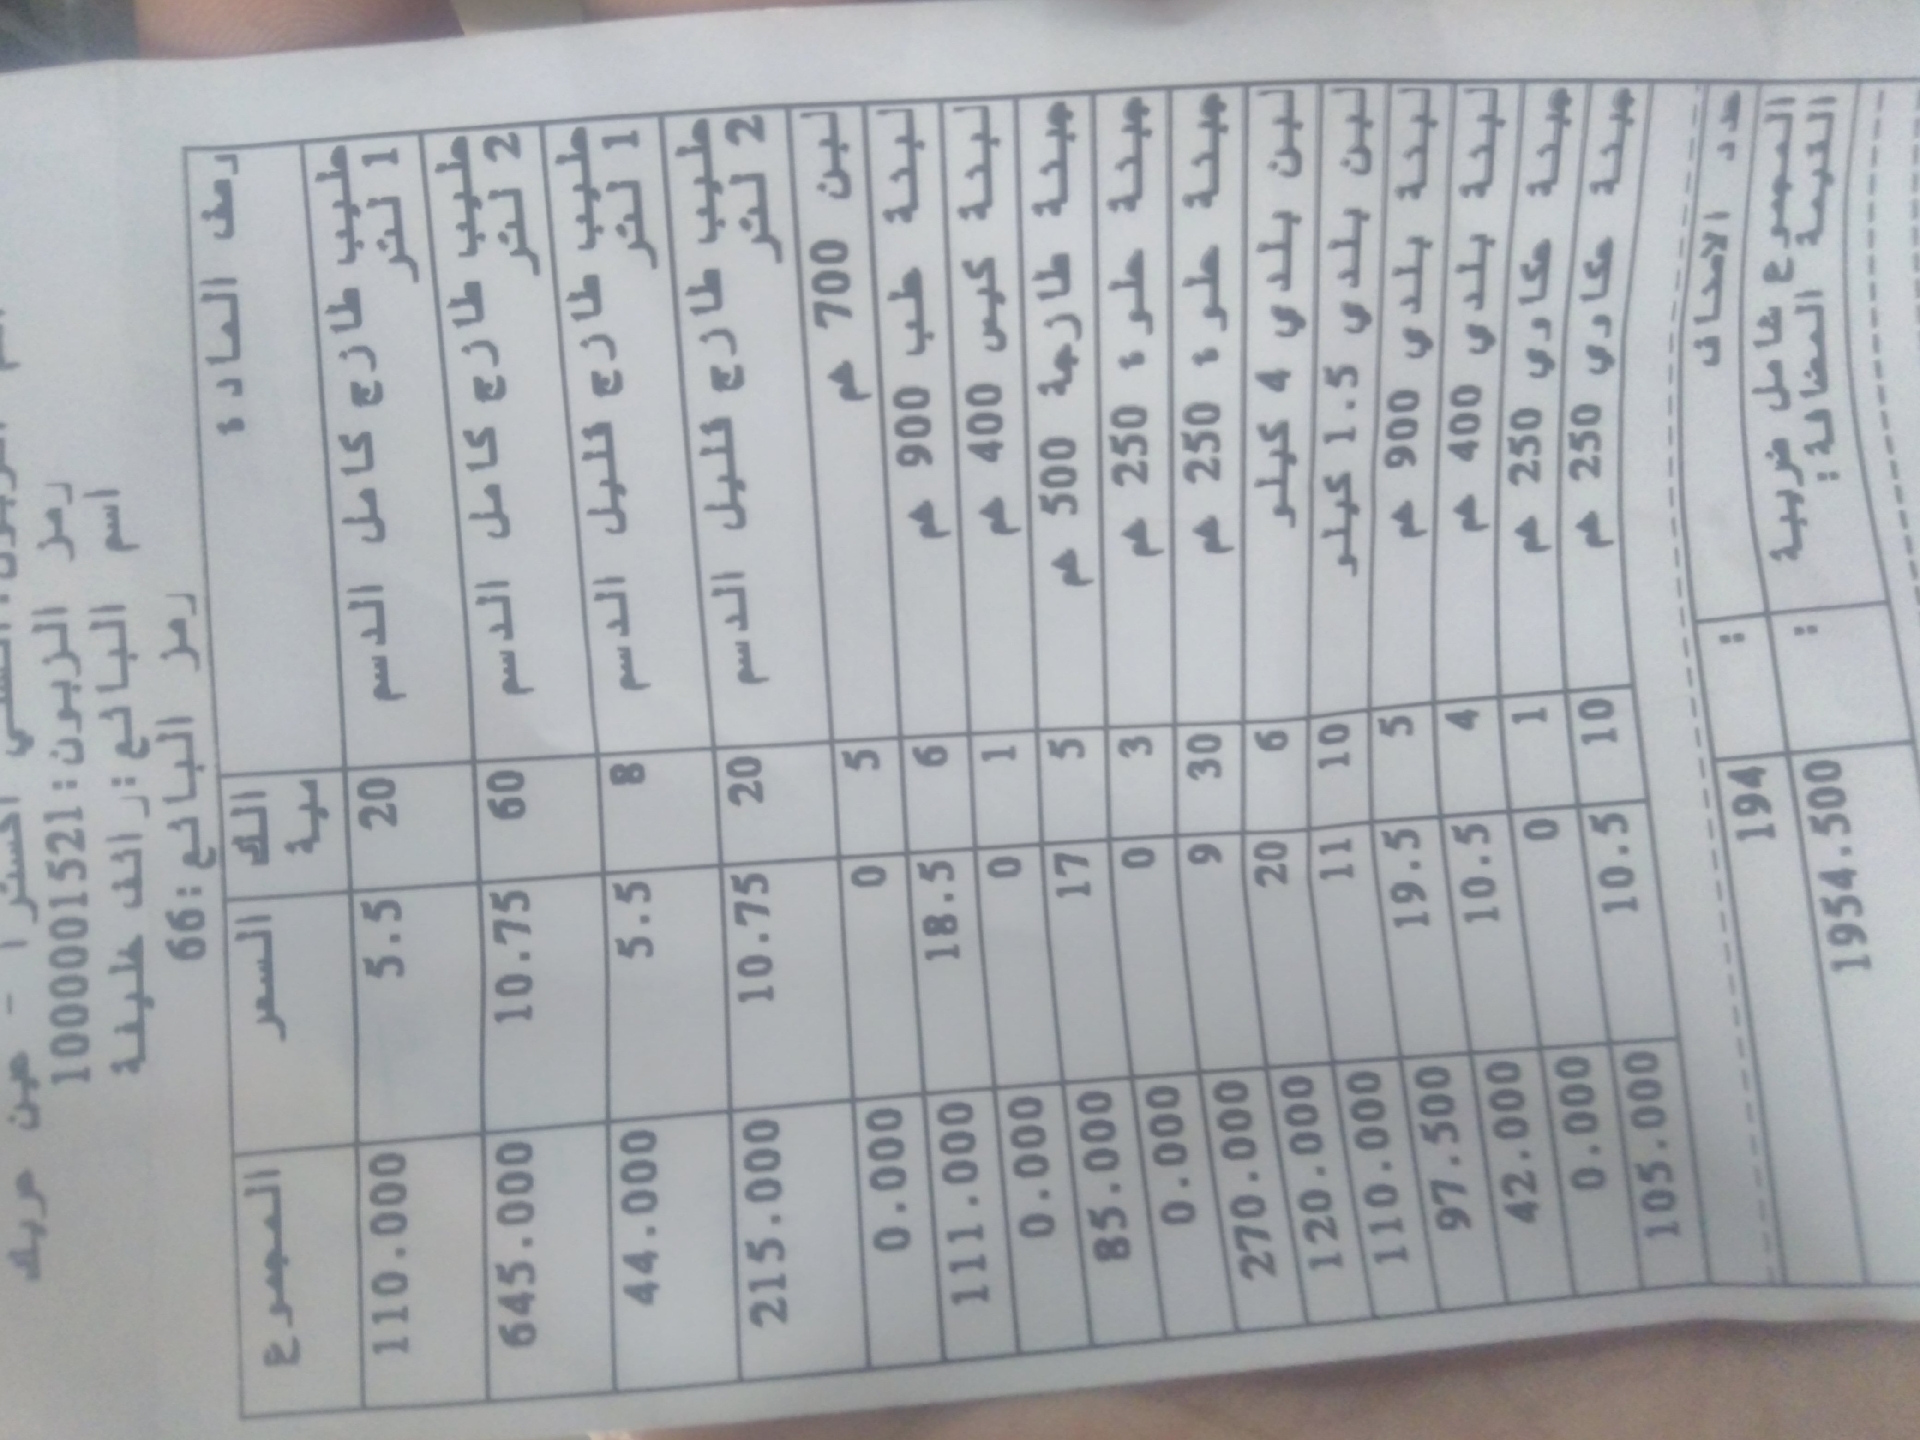 اكسترا - عين عريك
رمز الزبون: 1000001521
اسم البائع: رائف خليفة
رمز البائع: 66
وصف المادة الكمية السعر المجموع
حليب طازج كامل الدسم 20 5.5 110.000
1 لتر
حليب طازج كامل الدسم 60 10.75 645.000
2 لتر
حليب طازج قليل الدسم 8 5.5 44.000
1 لتر
حليب طازج قليل الدسم 20 10.75 215.000
2 لتر
لبن 700 غم 5 0 0.000
لبنة علب 900 غم 6 18.5 111.000
لبنة كيس 400 غم 1 0 0.000
جبنة طازجة 500 غم 5 17 85.000
جبنة حلوة 250 غم 3 0 0.000
جبنة حلوة 250 غم 30 9 270.000
لبن بلدي 4 كيلو 6 20 120.000
لبن بلدي 1.5 كيلو 10 11 110.000
لبنة بلدي 900 غم 5 19.5 97.500
لبنة بلدي 400 غم 4 10.5 42.000
جبنة عكاوي 250 غم 1 0 0.000
جبنة عكاوي 250 غم 10 10.5 105.000
عدد الاصناف : 194
المجموع شامل ضريبة : 1954.500
القيمة المضافة: